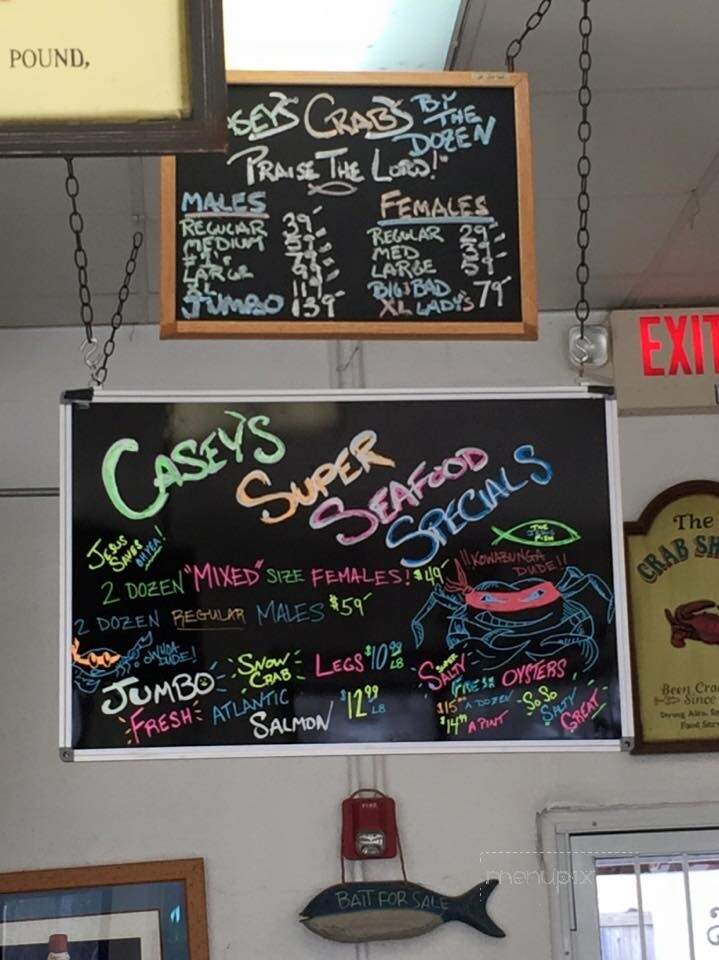 POUND,
SEY'S CRABS BY THE DOZEN
PRAISE THE LORD!
MALES
REGULAR 39
MEDIUM 59
#1's 79
LARGE 99
XL 119
JUMBO 139
FEMALES
REGULAR 29
MED 39
LARGE 59
BIG BAD XL LADY'S 79
EXIT
CASEY'S
SUPER
SEAFOOD
SPECIALS
JESUS SAVES OH YEA!
THE FISH
KOWABUNGA DUDE!!
2 DOZEN "MIXED" SIZE FEMALES! $49
2 DOZEN REGULAR MALES $59
WHOA DUDE!
JUMBO SNOW CRAB LEGS $10.99 LB
FRESH ATLANTIC SALMON $12.99 LB
SUPER SALTY FRESH OYSTERS
$15 A DOZEN
$14.99 A PINT
SO SO SALTY GREAT
The
CRAB SH
Been Cra
Since
Food
FIRE
BAIT FOR SALE
menupix